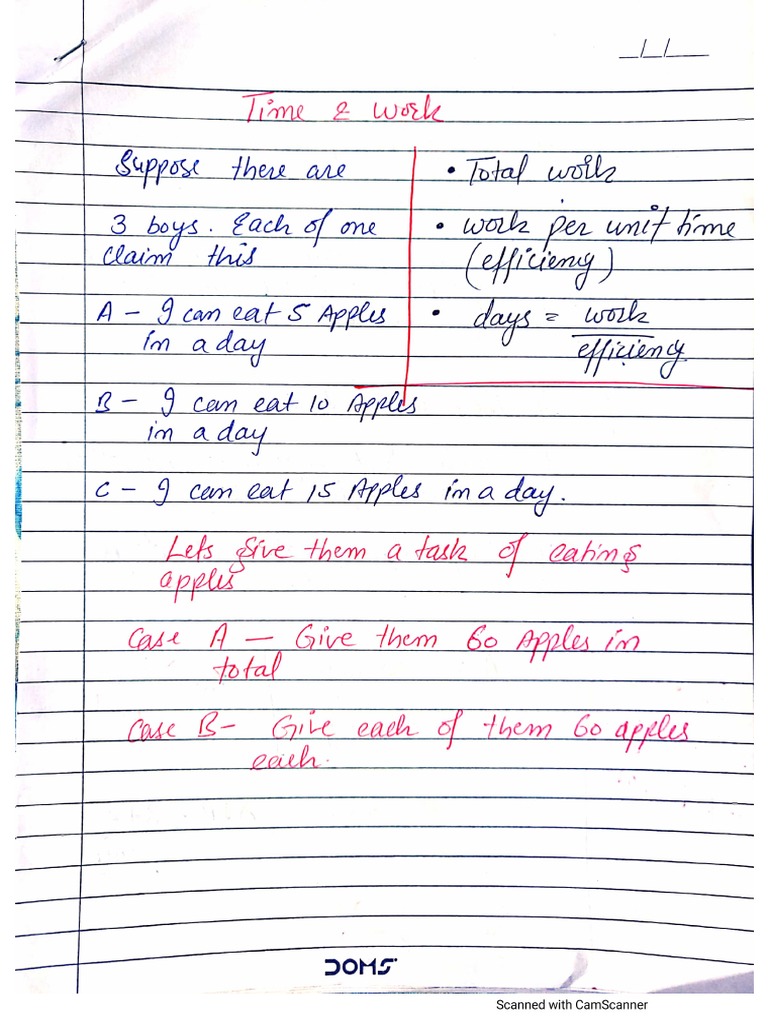 _/_/___
Time & Work
Suppose there are
3 boys. Each of one
claim this
A - I can eat 5 Apples
in a day
B - I can eat 10 Apples
in a day
C - I can eat 15 Apples in a day.
• Total work
• work per unit time
(efficiency)
• days = work
efficiency
Lets give them a task of eating
apples
Case A — Give them 60 Apples in
total
Case B- Give each of them 60 apples
each.
DOMS
Scanned with CamScanner